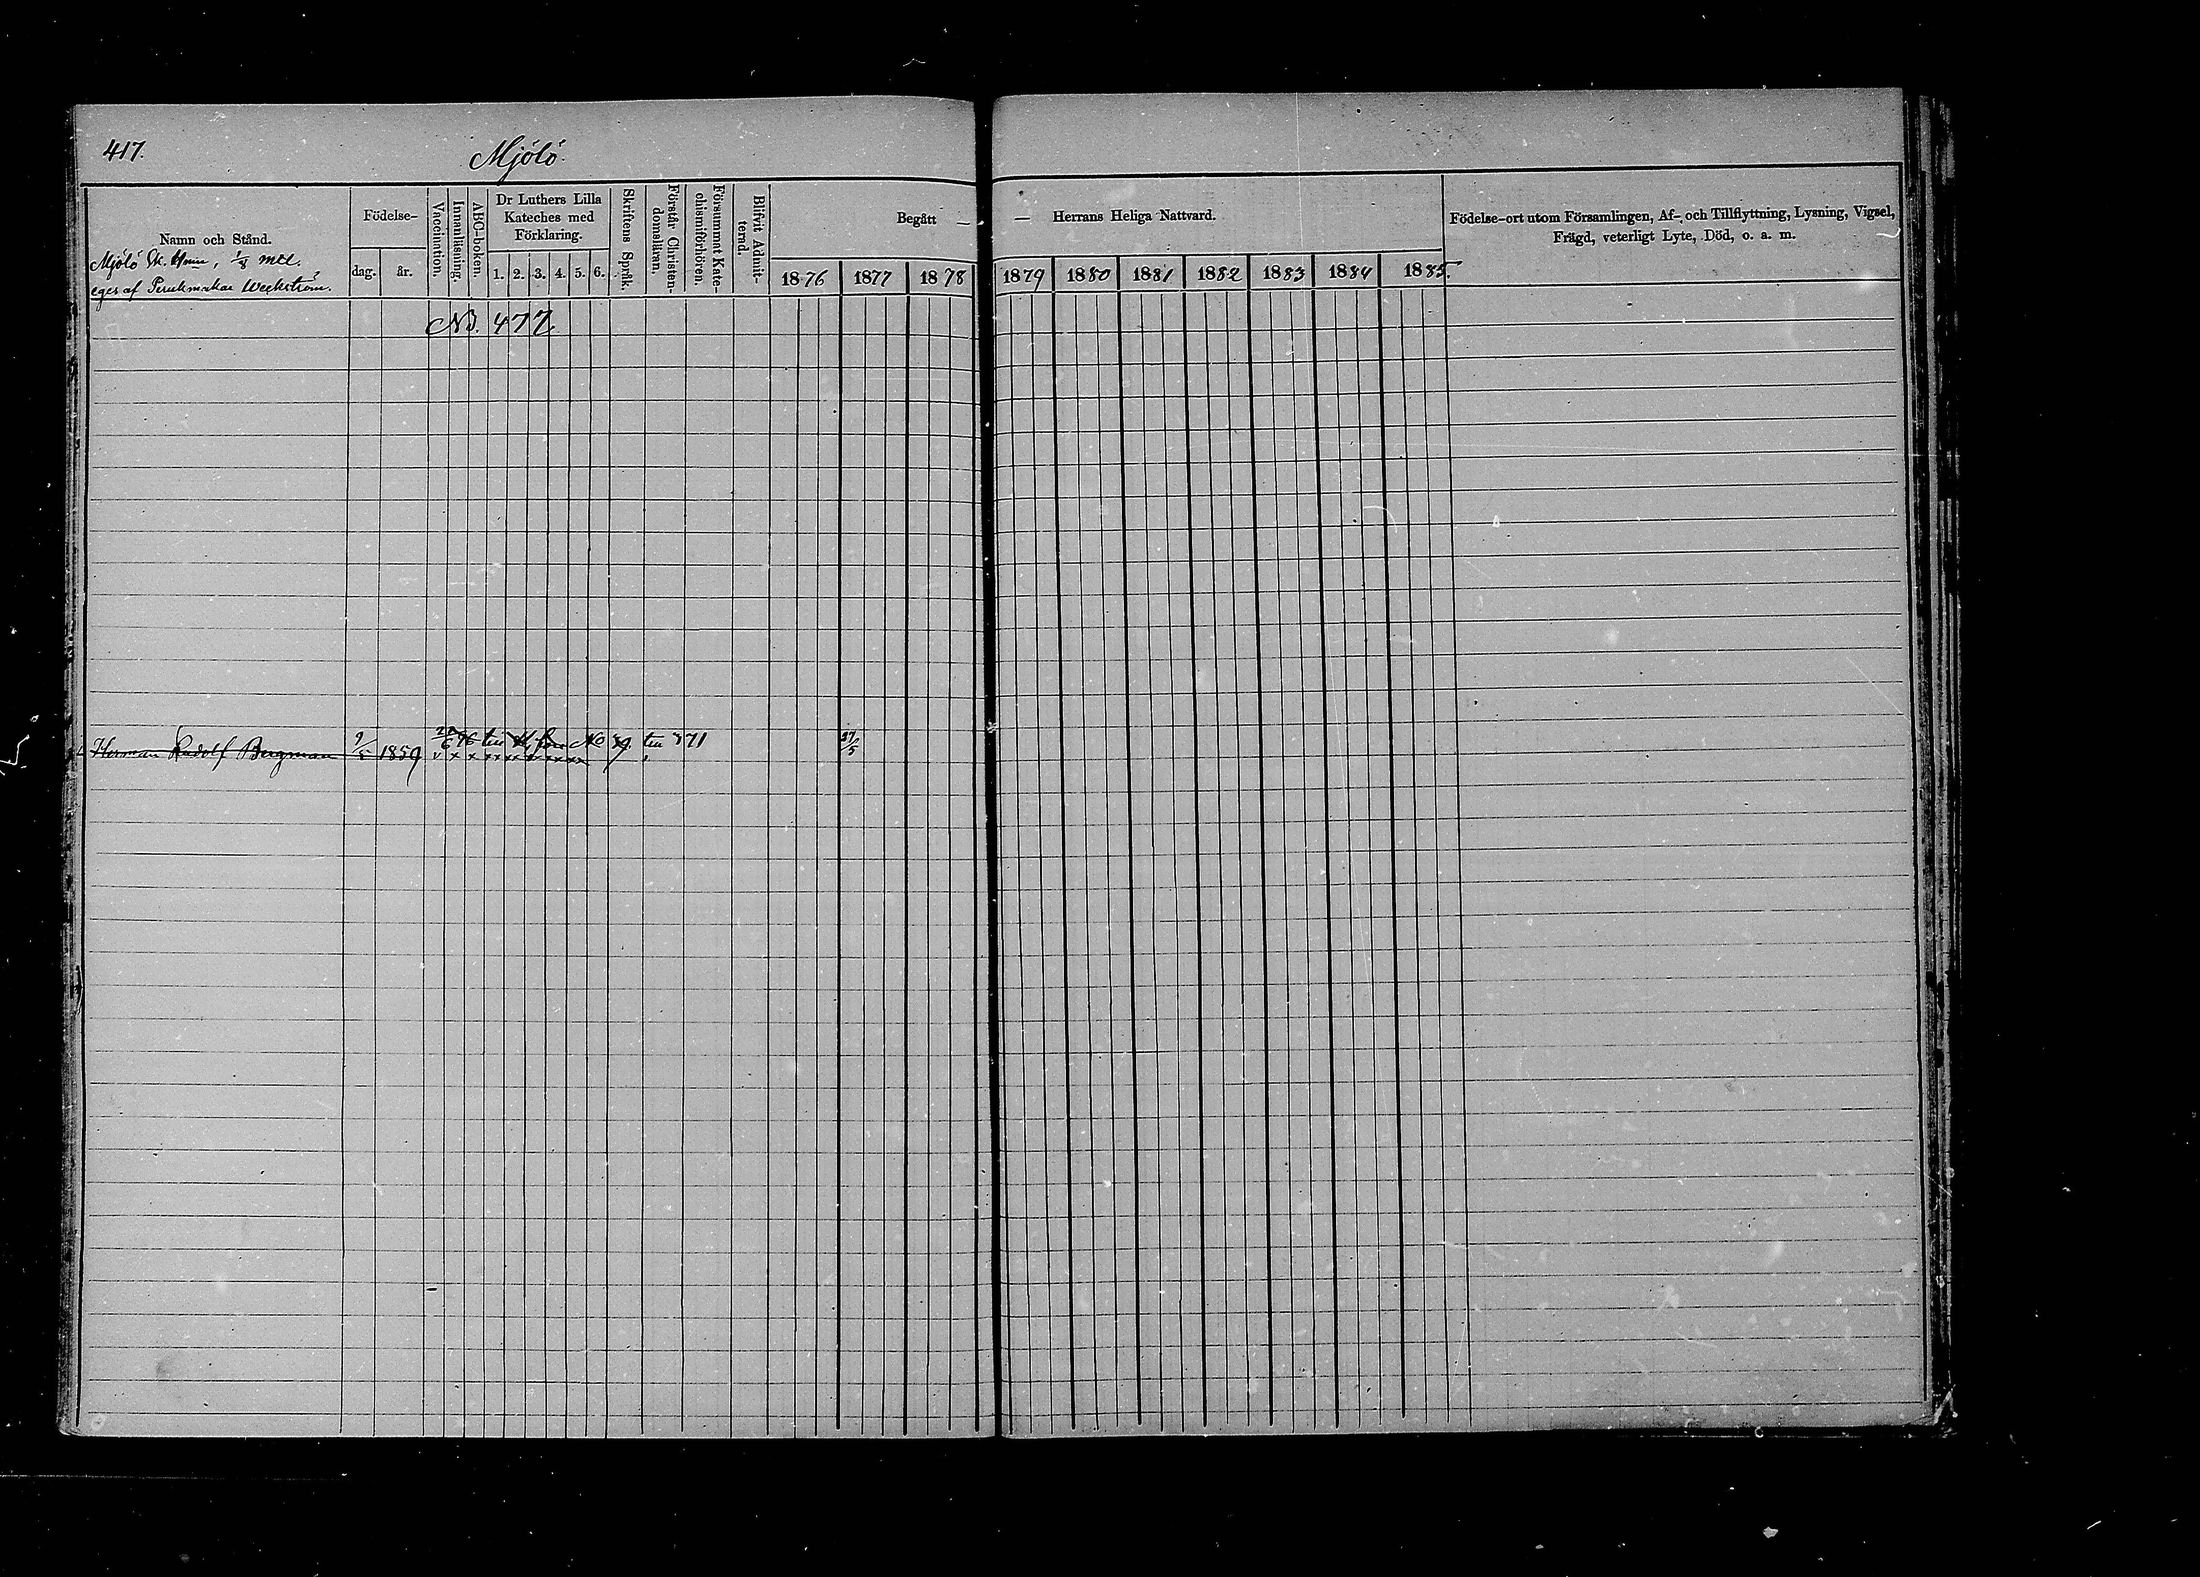 417.
Mjölö.
Namn och Stånd.
Mjölö Sk. Hem, 1/8 mtl.
eges af Perukmakar Weckström.
Födelse-
dag. år.
Vaccination.
Innanläsning.
ABC-boken.
Dr Luthers Lilla
Kateches med
Förklaring.
1. 2. 3. 4. 5. 6.
Skriftens Språk.
Förstår Christen-
domsläran.
Försummat Kate-
chismiförhören.
Blifvit Admit-
terad.
Begått —
1876 1877 1878
— Herrans Heliga Nattvard.
1879 1880 1881 1882 1883 1884 1885.
Födelse-ort utom Församlingen, Af- och Tillflyttning, Lysning, Vigsel,
Frägd, veterligt Lyte, Död, o. a. m.
NB. 477.
Herman Rudolf Bergman 9/5 1859 v x x x x x x x x x 27/5